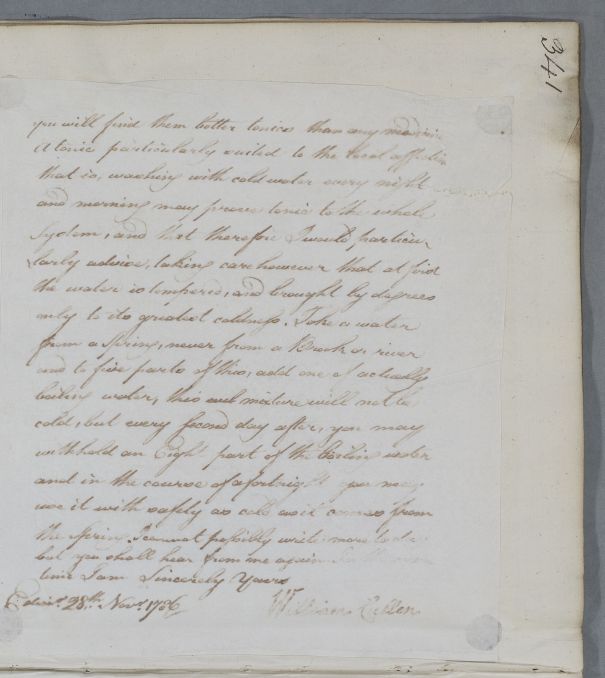 341
you will find them better tonics than any medicine
A tonic particularly suited to the local affection
that is, washing with cold water every night
and morning may prove tonic to the whole
System, and that therefore I would particu
larly advise, taking care however that at first
the water is tempered, and brought by degrees
only to its greatest coldness. Take a water
from a Spring, never from a Brook or river
and to five parts of this, add one of actually
boiling water, this mixture will not be
cold, but every second day after, you may
withhold an Eight part of the boiling water
and in the course of a fortnight you may
use it with safety as cold as it comes from
the Spring. I cannot possibly write more to day
but you shall hear from me again In the mean
time I am Sincerely Yours
Edinr. 28th. Novr. 1786 William Cullen